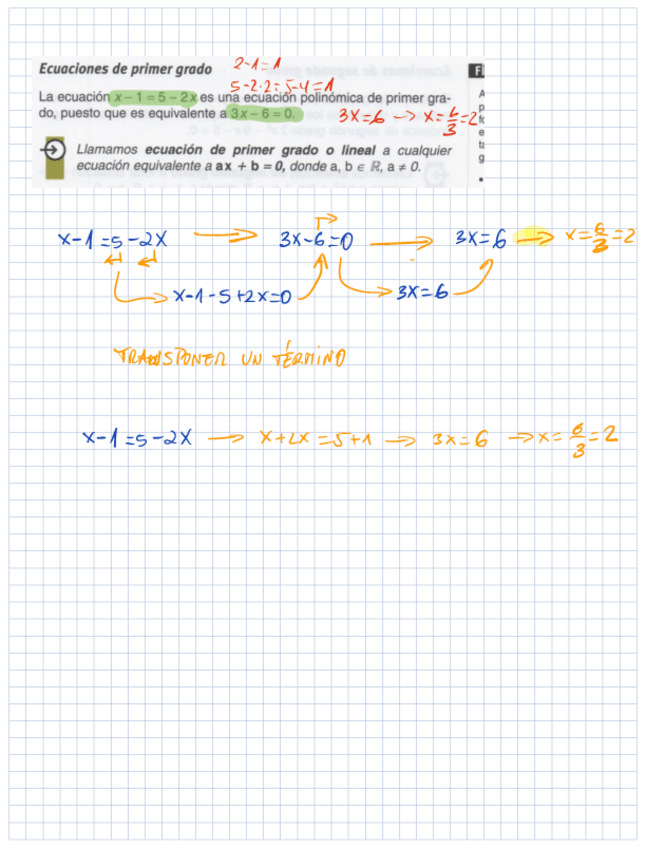 Ecuaciones de primer grado
2-1=1
5-2·2=5-4=1
La ecuación x – 1 = 5 – 2x es una ecuación polinómica de primer gra-
do, puesto que es equivalente a 3x – 6 = 0.
3x=6 → x=6/3=2
Llamamos ecuación de primer grado o lineal a cualquier
ecuación equivalente a ax + b = 0, donde a, b ∈ ℝ, a ≠ 0.
x-1=5-2x → 3x-6=0 → 3x=6 → x=6/3=2
x-1-5+2x=0 3x=6
TRANSPONER UN TÉRMINO
x-1=5-2x → x+2x=5+1 → 3x=6 → x=6/3=2